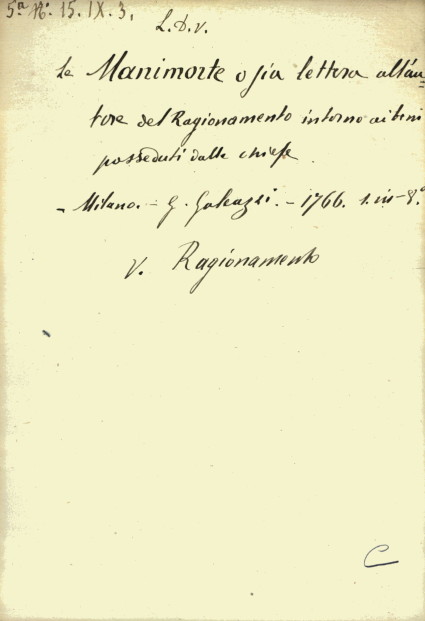 5.ª N.º 15. IX. 3.
L. D. V.
Le Manimorte o sia lettera all'au=
tore del Ragionamento intorno ai beni
posseduti dalle chiese.
- Milano. - G. Galeazzi. - 1766. 1. in-8.º
V. Ragionamento
C